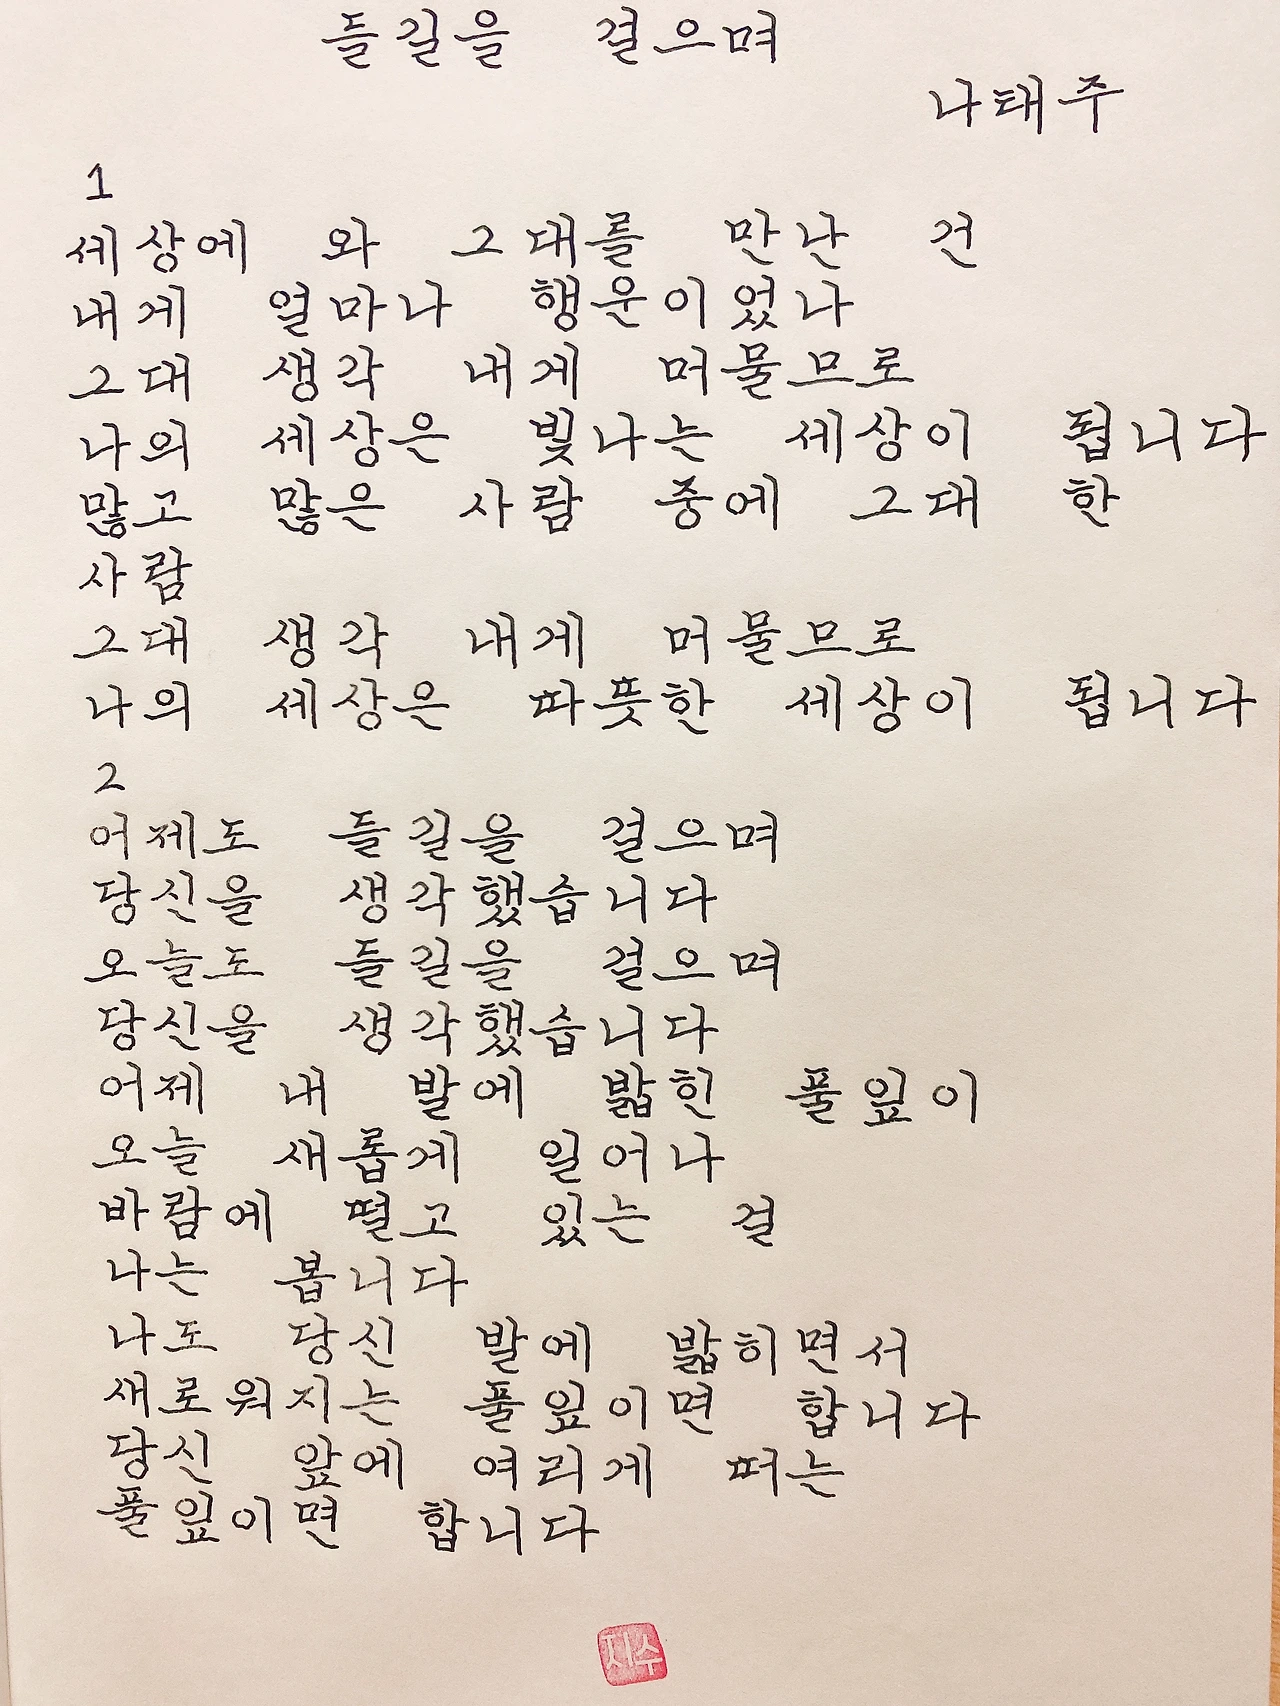 들길을 걸으며
나태주
1
세상에 와 그대를 만난 건
내게 얼마나 행운이었나
그대 생각 내게 머물므로
나의 세상은 빛나는 세상이 됩니다
많고 많은 사람 중에 그대 한
사람
그대 생각 내게 머물므로
나의 세상은 따뜻한 세상이 됩니다
2
어제도 들길을 걸으며
당신을 생각했습니다
오늘도 들길을 걸으며
당신을 생각했습니다
어제 내 발에 밟힌 풀잎이
오늘 새롭게 일어나
바람에 떨고 있는 걸
나는 봅니다
나도 당신 발에 밟히면서
새로워지는 풀잎이면 합니다
당신 앞에 여리게 떠는
풀잎이면 합니다
지수